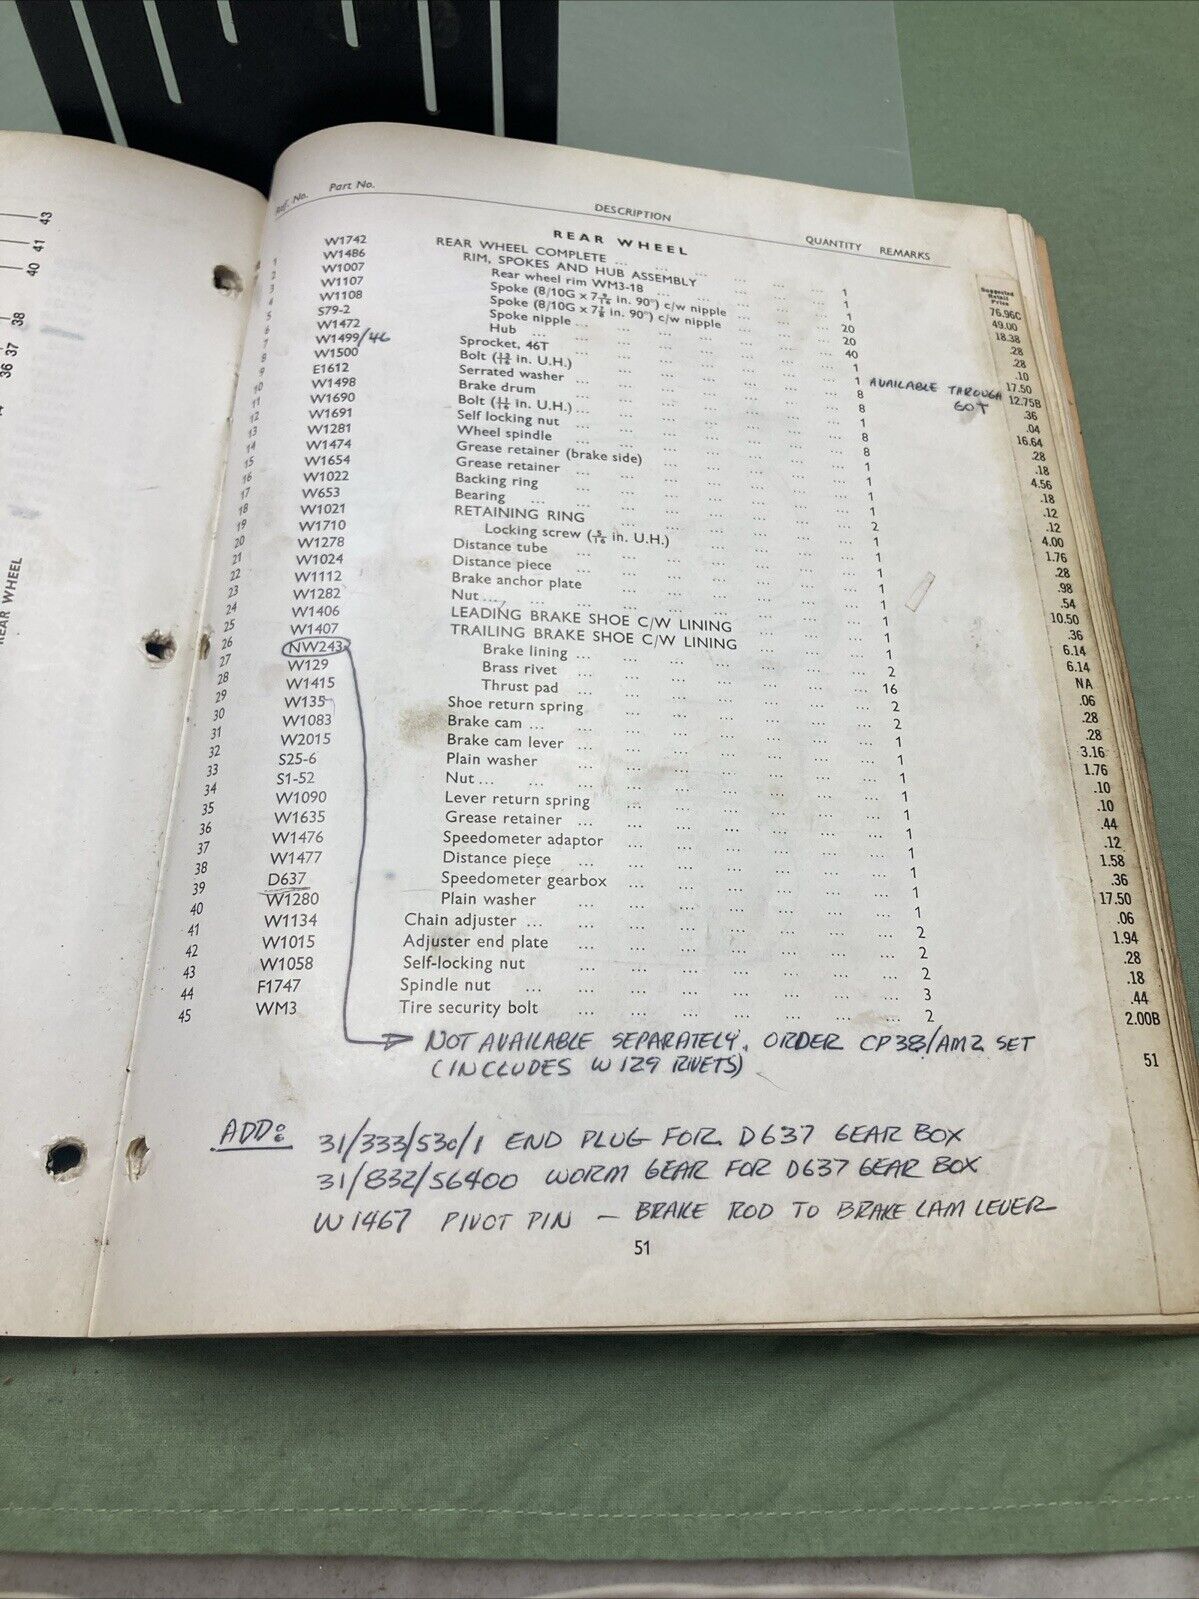 43
41
40
38
36 37
REAR WHEEL
Ref. No. Part No. DESCRIPTION QUANTITY REMARKS
REAR WHEEL
Suggested Retail Price
1 W1742 REAR WHEEL COMPLETE ... ... ... 1 76.96C
2 W1486 RIM, SPOKES AND HUB ASSEMBLY 1 49.00
3 W1007 Rear wheel rim WM3-18 ... 1 18.38
4 W1107 Spoke (8/10G x in. 90°) c/w nipple 20 .28
5 W1108 Spoke (8/10G x in. 90°) c/w nipple 20 .28
6 S79-2 Spoke nipple ... 40 .10
7 W1472 Hub ... 1 17.50
8 W1499/46 Sprocket, 46T 1 AVAILABLE THROUGH 60T 12.75B
9 W1500 Bolt (13/16 in. U.H.) 8 .36
10 E1612 Serrated washer ... 8 .04
11 W1498 Brake drum 1 16.64
12 W1690 Bolt (11/16 in. U.H.) ... 8 .28
13 W1691 Self locking nut 8 .18
14 W1281 Wheel spindle ... 1 4.56
15 W1474 Grease retainer (brake side) 1 .18
16 W1654 Grease retainer ... 1 .12
17 W1022 Backing ring 1 .12
18 W653 Bearing ... 2 4.00
19 W1021 RETAINING RING 1 1.76
20 W1710 Locking screw (5/16 in. U.H.) 1 .28
21 W1278 Distance tube 1 .98
22 W1024 Distance piece ... 1 .54
23 W1112 Brake anchor plate 1 10.50
24 W1282 Nut ... 1 .36
25 W1406 LEADING BRAKE SHOE C/W LINING 1 6.14
26 W1407 TRAILING BRAKE SHOE C/W LINING 1 6.14
27 NW243 Brake lining ... 2 NA
28 W129 Brass rivet ... 16 .06
29 W1415 Thrust pad ... 2 .28
30 W135 Shoe return spring 2 .28
31 W1083 Brake cam ... 1 3.16
32 W2015 Brake cam lever ... 1 1.76
33 S25-6 Plain washer ... 1 .10
34 S1-52 Nut ... 1 .10
35 W1090 Lever return spring 1 .44
36 W1635 Grease retainer ... 1 .12
37 W1476 Speedometer adaptor 1 1.58
38 W1477 Distance piece ... 1 .36
39 D637 Speedometer gearbox 1 17.50
40 W1280 Plain washer ... 1 .06
41 W1134 Chain adjuster ... 2 1.94
42 W1015 Adjuster end plate ... 2 .28
43 W1058 Self-locking nut ... 2 .18
44 F1747 Spindle nut ... 3 .44
45 WM3 Tire security bolt ... 2 2.00B
NOT AVAILABLE SEPARATELY. ORDER CP38/AM2 SET
(INCLUDES W129 RIVETS)
51
ADD: 31/333/530/1 END PLUG FOR D637 GEAR BOX
31/832/56400 WORM GEAR FOR D637 GEAR BOX
W1467 PIVOT PIN — BRAKE ROD TO BRAKE CAM LEVER
51